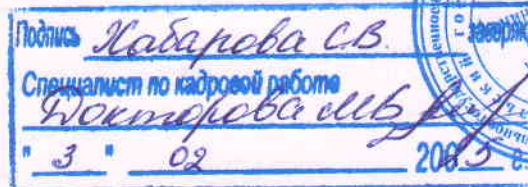 Подпись Хабарова С.В. заверяю
Специалист по кадровой работе
Докторова М.Б.
" 3 " 02 2005 г.